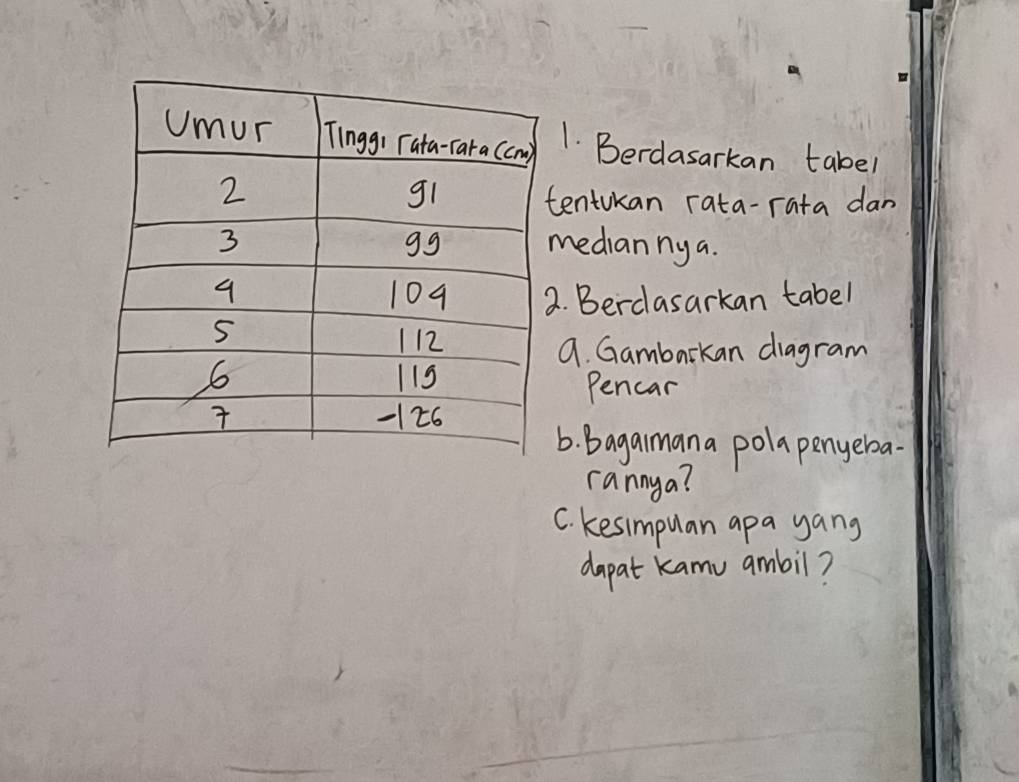 Umur Tinggi rata-rata (cm)
2 91
3 99
4 104
5 112
6 119
7 -126
1. Berdasarkan tabel
tentukan rata-rata dan
mediannya.
2. Berdasarkan tabel
a. Gambarkan diagram
Pencar
b. Bagaimana pola penyeba-
rannya?
C. kesimpulan apa yang
dapat kamu ambil?